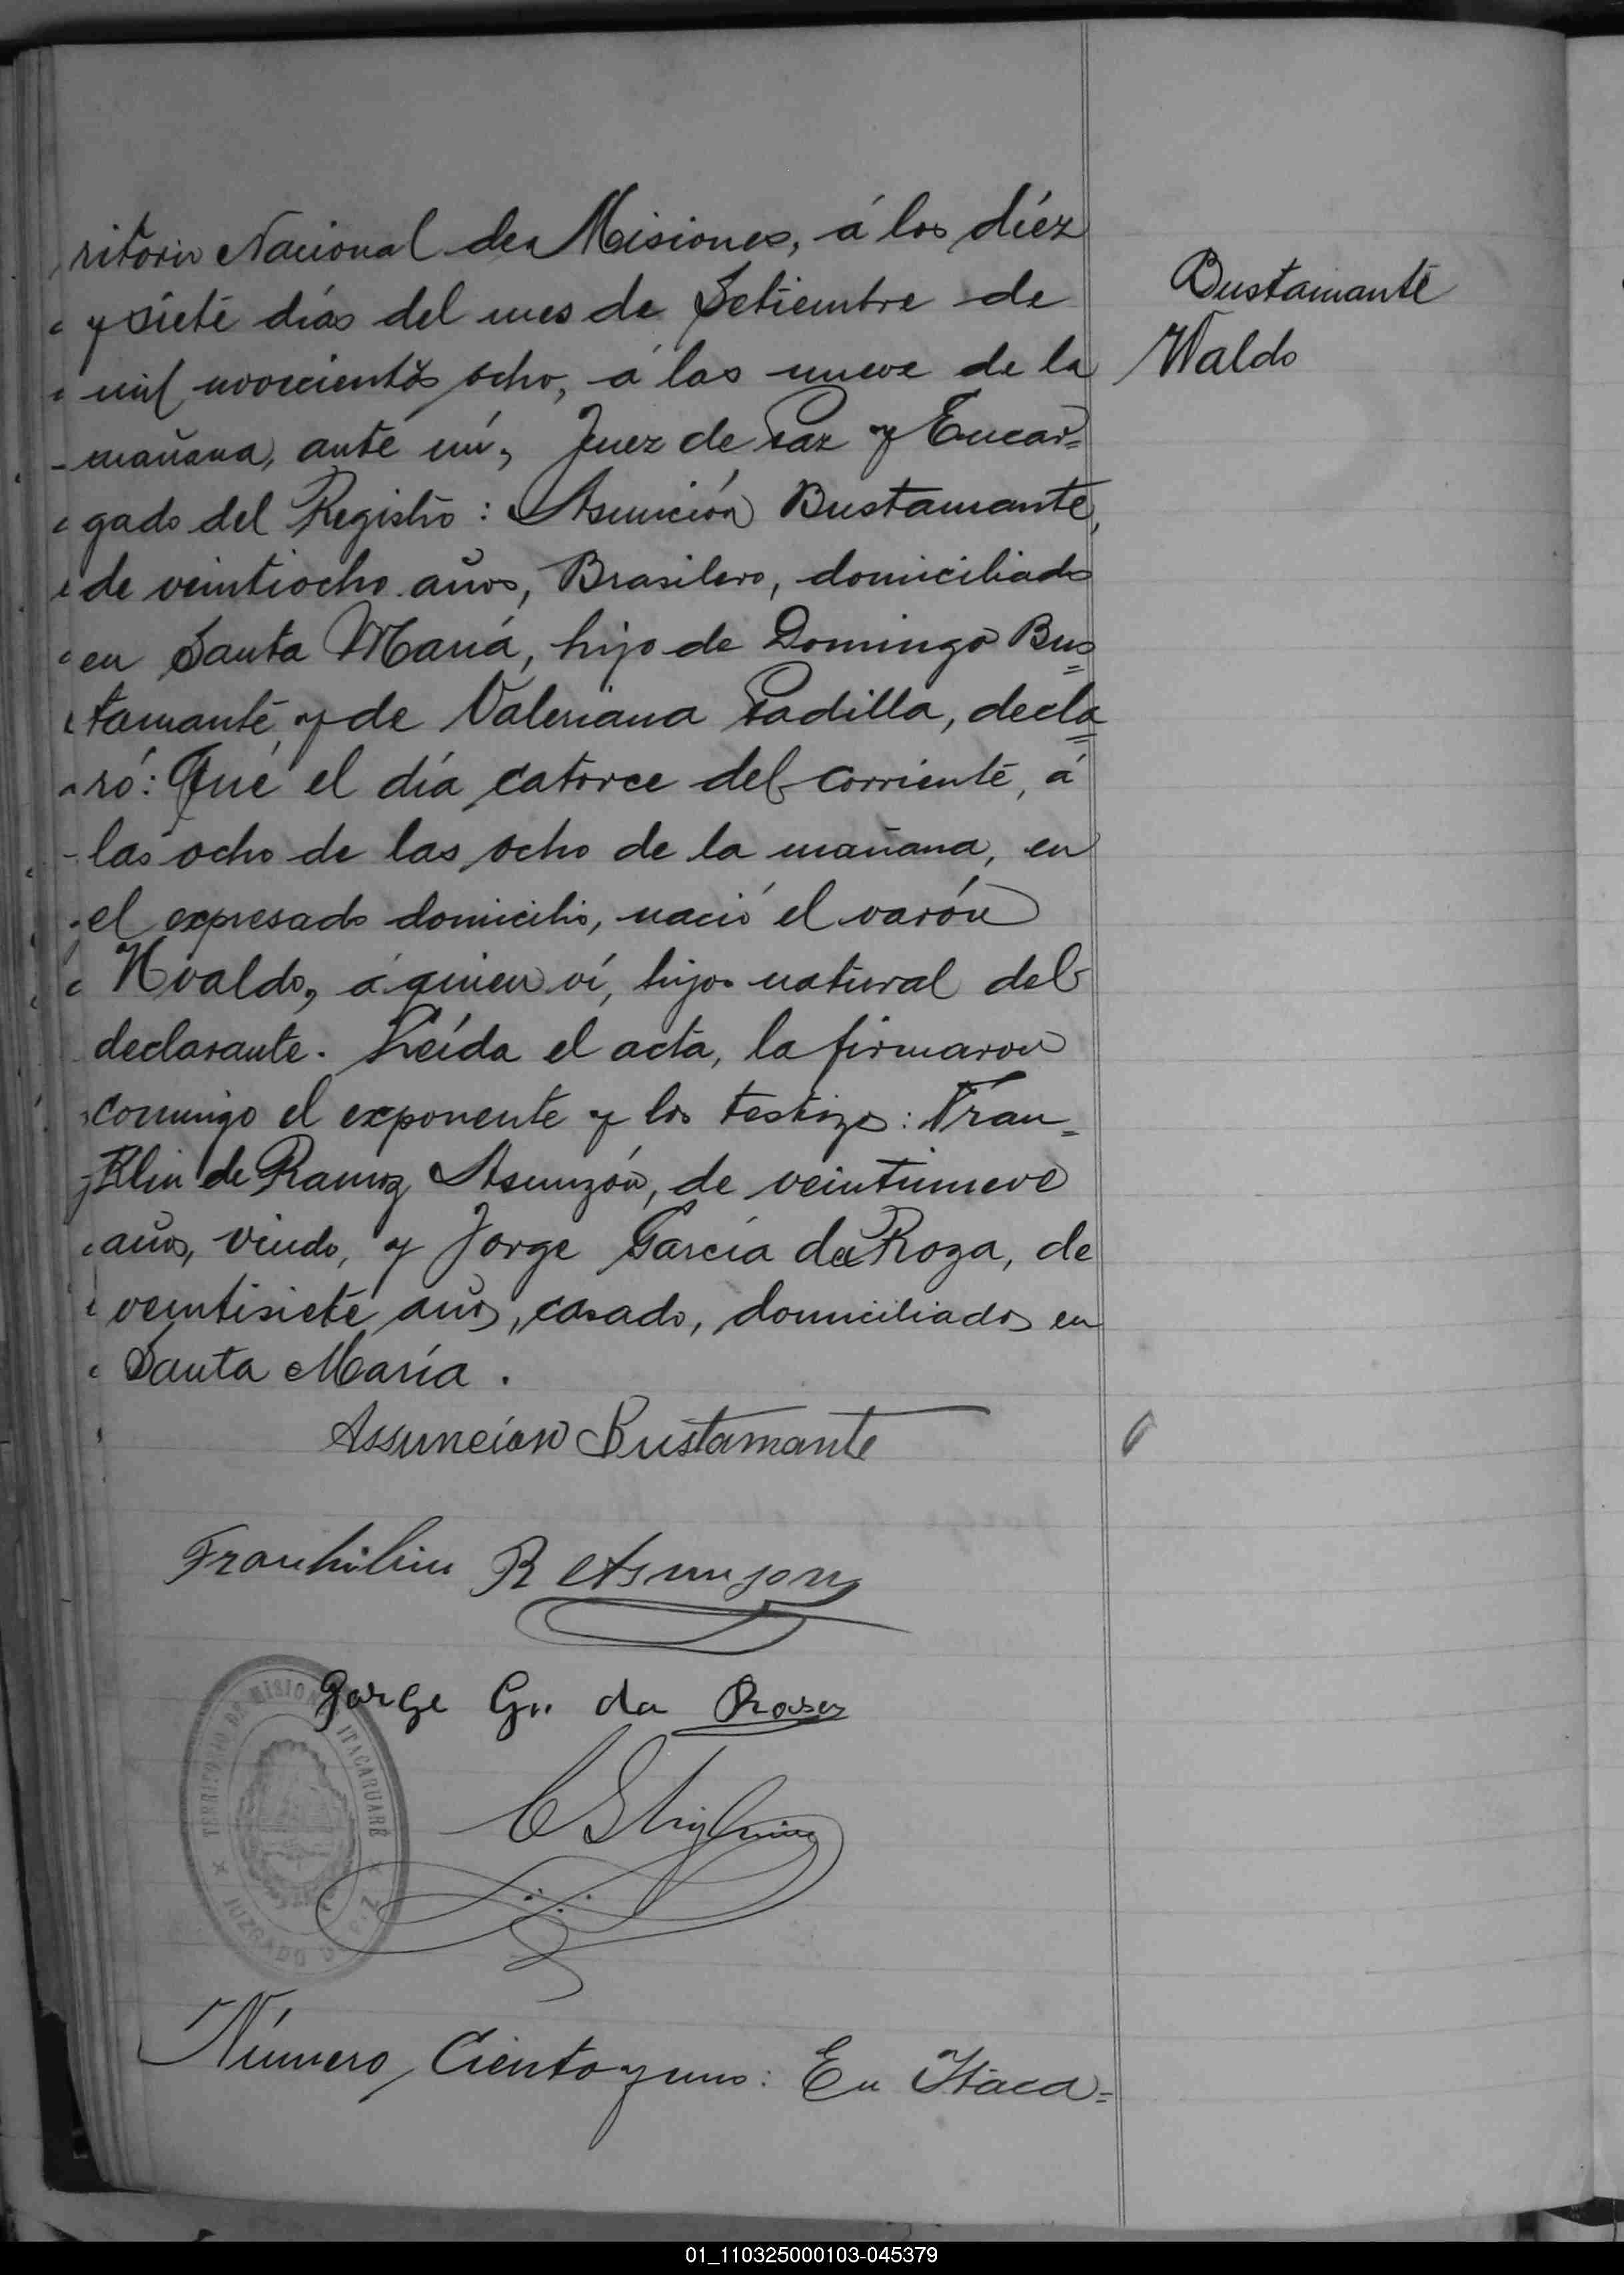 ritorio Nacional de Misiones, á los diéz
y siete días del mes de Setiembre de
mil novecientos ocho, á las nueve de la
mañana, ante mí, Juez de Paz y Encar=
gado del Registro: Asunción Bustamante,
de veintiocho años, Brasilero, domiciliado
en Santa María, hijo de Domingo Bus=
tamante, y de Valeriana Padilla, decla=
ró: Que el día catorce del corriente, á
las ocho de las ocho de la mañana, en
el expresado domicilio, nació el varón
Waldo, á quien ví, hijo natural del
declarante. Leída el acta, la firmaron
conmigo el exponente y los testigos: Fran=
klin de Ramoz Asunzón, de veintinueve
años, viudo, y Jorge García da Roza, de
veintisiete años, casado, domiciliados en
Santa María.
Bustamante
Waldo
Assuncion Bustamante
Frankilin R Asunzon
Jorge G. da Rosa
TERRITORIO DE MISIONES ITACARUARÉ
JUZGADO DE PAZ
Número Ciento y uno: En Itaca=
01_110325000103-045379